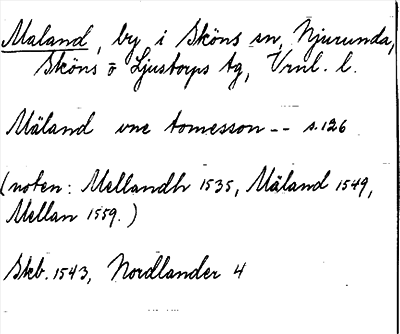 Maland, by i Sköns sn, Njurunda,
Sköns o Ljustorps tg, Vrnl. l.
Mäland vne tomesson -- s.126
(noten: Mellandh 1535, Mäland 1549,
Mellan 1559.)
Skb. 1543, Nordlander 4